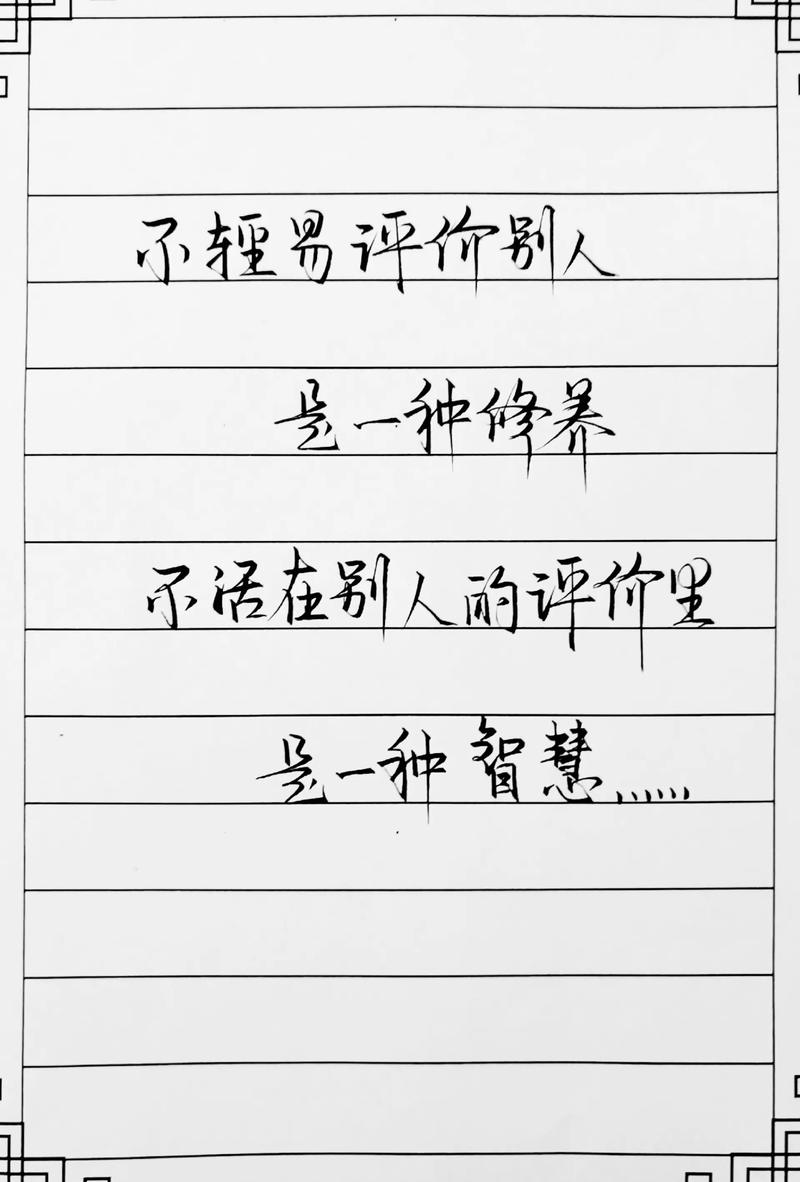 不輕易评价别人
是一种修养
不活在别人的评价里
是一种智慧......